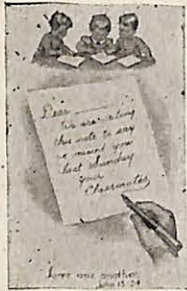 Dear
We are writing
this note to say
we missed you
last Sunday
your
Classmates
Love one another
John 13:34